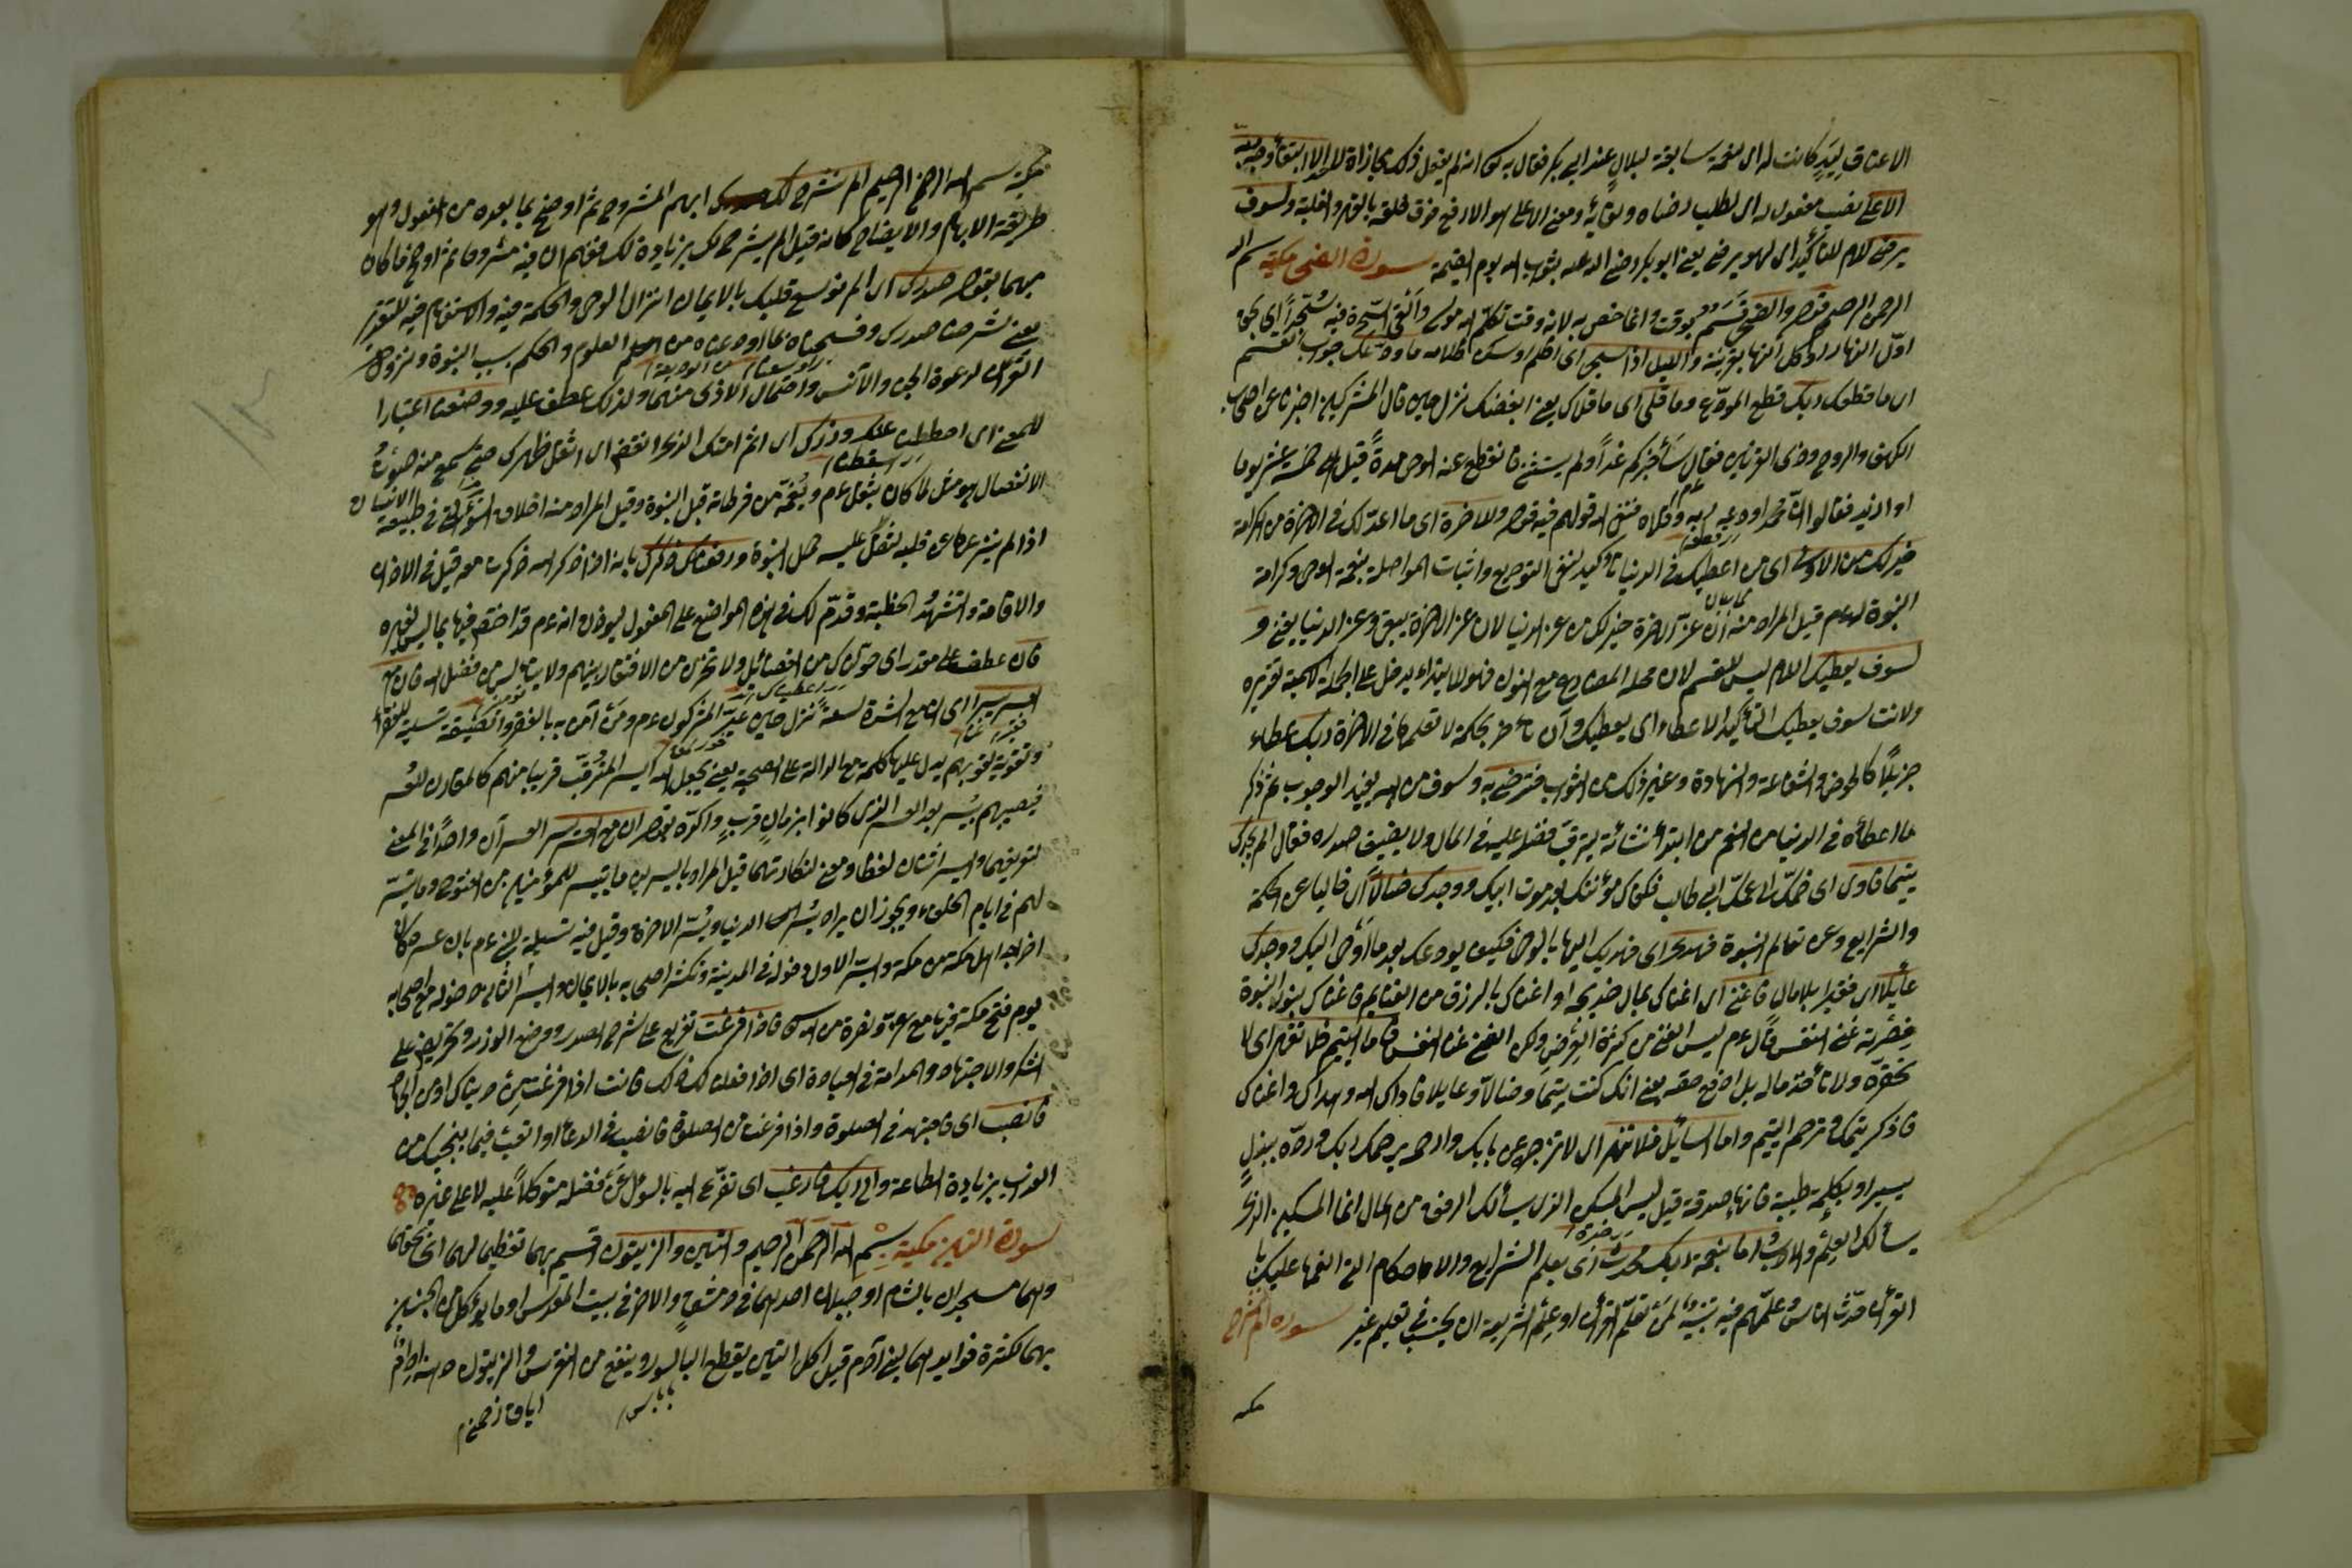 الاعتاق ليد كانت له اى نعمة سابقة لبلال عند ابى بكر فقال به كما انه لم يفعل ذلك مجازاة لاحد الا ابتغاء وجه ربه
الاعلى نصب مفعول له اى لطلب رضاه ولقائه ومعنى الاعلى هو الارفع فوق خلقه بالقهر والغلبة ولسوف
يرضى اللام للتأكيد اى لهو يرضى يعنى ابو بكر رضى الله عنه بثواب الله يوم القيمة سورة الضحى مكية بسم الله
الرحمن الرحيم والضحى قسم بوقت وانما خص به لانه وقت تكلم الله موسى والقى السحرة فيه سجدا اى بحق
اول النهار او كل النهار بقرينة والليل اذا سجى اى اظلم او سكن ظلامه ما ودعك جواب القسم
اى ما قطعك ربك قطع المودع وما قلى اى ما قلاك يعنى ابغضك نزل حين قال المشركين اخبرنا عن اصحاب
الكهف والروح وذى القرنين فقال سأخبركم غدا ولم يستثن فانقطع عنه الوحى مدة قيل خمسة عشر يوما
او ازيد فقالوا ان محمدا ودعه ربه وقلاه فنفى الله قولهم فيه وللآخرة اى ما اعد لك فى الآخرة من الكرامة
خير لك من الاولى اى من اعطيك فى الدنيا تأكيد لنفى التوديع واثبات المواصلة بنعمة الوحى وكرامة
النبوة له عم قيل المراد منه ان عز الآخرة خير لك من عز الدنيا لان عز الآخرة يبقى وعز الدنيا يفنى و
لسوف يعطيك اللام ليس للقسم لان محله المضارع مع النون فهو للابتداء يدخل على الجملة الاسمية تقديره
ولانت لسوف يعطيك لتأكيد الاعطاء اى يعطيك وان تأخر بحكمة لا تعلمها فى الآخرة ربك عطاء
جزيلا كالحوض والشفاعة والشهادة وغير ذلك من الثواب فترضى به وسوف من الله يفيد الوجوب ثم ذكر
ما اعطاه فى الدنيا من النعم من ابتداء نشأته يترقب فضله عليه فى المال ولا يضيق صدره فقال الم يجدك
يتيما فاوى اى ضمك الى عمك ابى طالب فكفاك مؤنتك بعد موت ابيك ووجدك ضالا اى خاليا عن الحكمة
والشرايع وعن تعالم النبوة فهدى اى فهديك اليها بالوحى فكيف يودعك بعد ما اوحى اليك ووجدك
عائلا اى فقيرا بلا مال فاغنى اى اغناك بمال خديجة او اغناك بالرزق من الغنايم فاغناك بنور النبوة
غنى النفس قال عم ليس الغنى من كثرة العرض ولكن الغنى غنى النفس فاما اليتيم فلا تقهر اى لا
تحقره ولا تأخذ ماله بل ادفع حقه يعنى انك كنت يتيما وضالا وعايلا فاواك الله وهداك واغناك
فاذكر يتمك وترحم اليتيم واما السائل فلا تنهر اى لا تزجر عن بابك وارحمه يرحمك ربك ورده ببذل
يسير او بكلمة طيبة فانها صدقة قيل ليس المسكين الذى يسألك الرفق من المال انما المسكين الذى
يسألك العلم والادب اما بنعمة ربك فحدث اى بعلم الشرايع والاحكام التى انعمها عليك
القرآن حدث الناس وعلمهم فيه تنبيه لمن تعلم القرآن او علم الشريعة ان يجتهد فى تعليم غير سورة الم نشرح
مكية
مكية بسم الله الرحمن الرحيم الم نشرح لك ابهم المشروح ثم اوضح بما بعده من المفعول وهو
طريقة الابهام والايضاح كانه قيل الم يشرح لك بزيادة لك ففهم ان فيه مشروحا ثم اوضح ما كان
مبهما بقوله صدرك اى الم نوسع قلبك بالايمان انزال الوحى والحكمة فيه والاستفهام فيه للتقرير
يعنى شرحنا صدرك وفسحناه بما اودعناه من العلوم والحكم بسبب النبوة ونزول
القرآن لدعوة الجن والانس واحتمال الاذى منهما ولذلك عطف عليه ووضعنا اعتبارا
للمعنى اى احططنا عنك وزرك اى اثم امتك الذى انقض اى اثقل ظهرك حتى سمع منه صوت
الانفصال هو مثل لما كان يثقل عم ويغمه من فرطاته قبل النبوة وقيل المراد منه اخلاق السوء التى فى طبيعة الانسان
اذا لم ينزع عن قلبه لثقل عليه حمل النبوة ورفعنا لك ذكرك بانه اذا ذكر الله ذكرت معه قيل فى الاذان
والاقامة والتشهد والخطبة وقدم لك فى هذه المواضع على المفعول ليوذن انه عم قد اختص فيها بما ليس لغيره
فان عطف على مقدر اى خولناك من الفضائل ولا تحزن من الافتقار بينهم ولا تيأس من فضل الله فان مع
العسر يسرا اى ان مع الشدة لسعة نزل حين عير المشركون عم ومن آمن به بالفقر والضيقة تسلية للفقراء
وتقوية لقوبهم يدل عليها كلمة مع الدالة على الصحبة يعنى يجعل الله اليسر المترقب قريبا منهم كالمقارن للعسر
فيصيبهم يسر بعد العسر الذى كانوا بزمان قريب واكده بقوله ان مع العسر يسرا العسران واحد فى المعنى
لتعريفهما واليسر اثنان لفظا ومعنى لنكارتهما قيل المراد باليسرين ما تيسر للمؤمنين من الفتوح وما تيسر
لهم فى ايام الخلفاء ويجوز ان يراد يسر الدنيا ويسر الآخرة وقيل فيه تسلية للنبى عم بان عسره كان
اخراج اهل مكة من مكة واليسر الاول دخوله فى المدينة وكثر اصحابه بالايمان واليسر الثانى دخوله مع اصحابه
يوم فتح مكة فيها مع عزة ونصرة من الله فاذا فرغت تفريع على شرح الصدر ووضع الوزر وتحريض على
الشكر والاجتهاد والمداومة فى العبادة اى اذا فعلنا لك ذلك فانت اذا فرغت من دنياك او من الجهاد
فانصب اى فاجتهد فى الصلوة واذا فرغت من الصلوة فانصب فى الدعاء او اتعب فيما ينجيك من
العذاب بزيادة الطاعة والى ربك فارغب اى تضرع اليه بالسؤال عن فضله متوكلا عليه لا على غيره
سورة التين مكية بسم الله الرحمن الرحيم والتين والزيتون اقسم بهما تعظيما لهما
وهما مسجدان بالشام او جبلان احدهما فى دمشق والاخر فى بيت المقدس او ما يؤكل من الجنسين
بهما لكثرة فوايدهما لبنى آدم قيل اكل التين يقطع البواسير وينفع من النقرس والزيتون